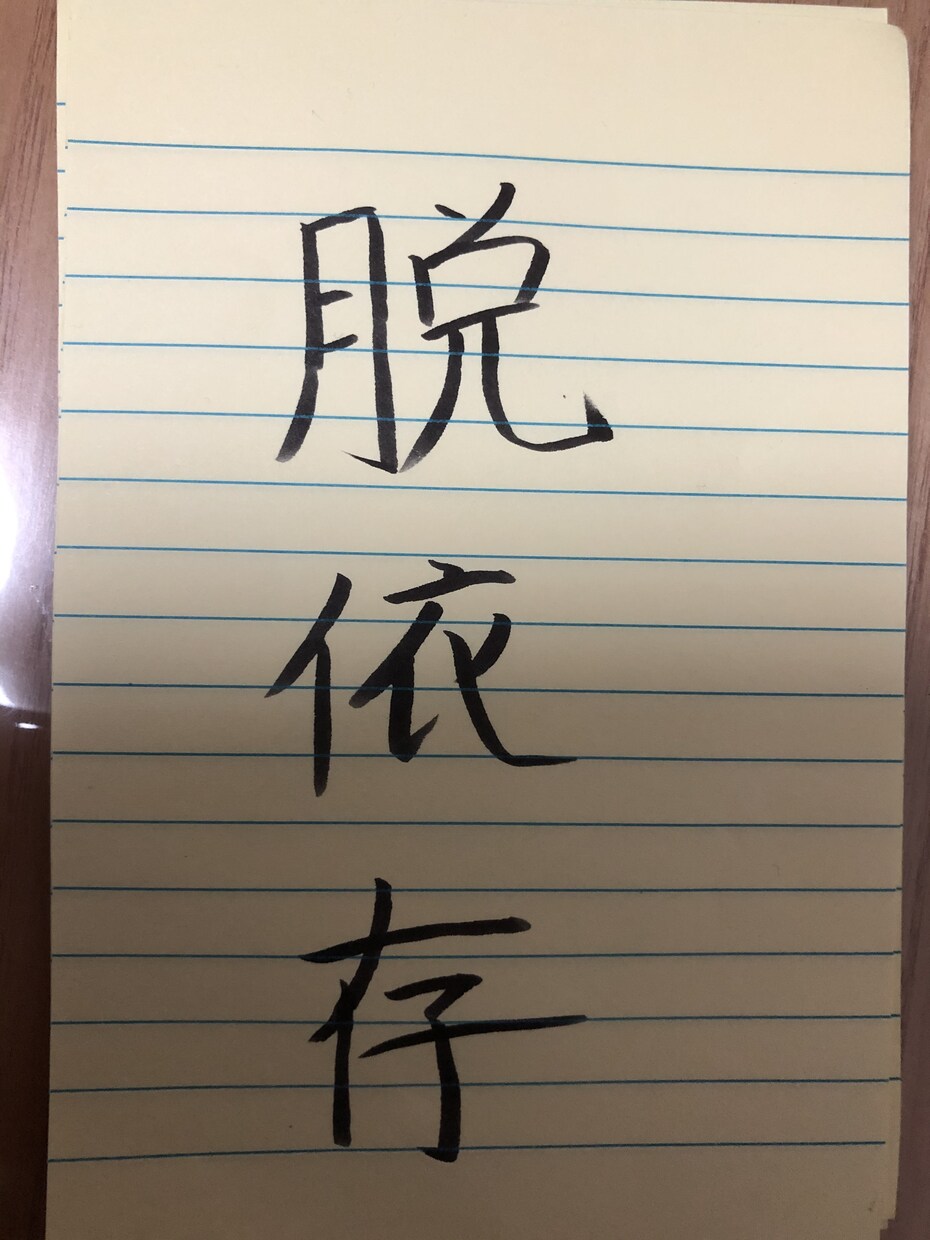 脱依存